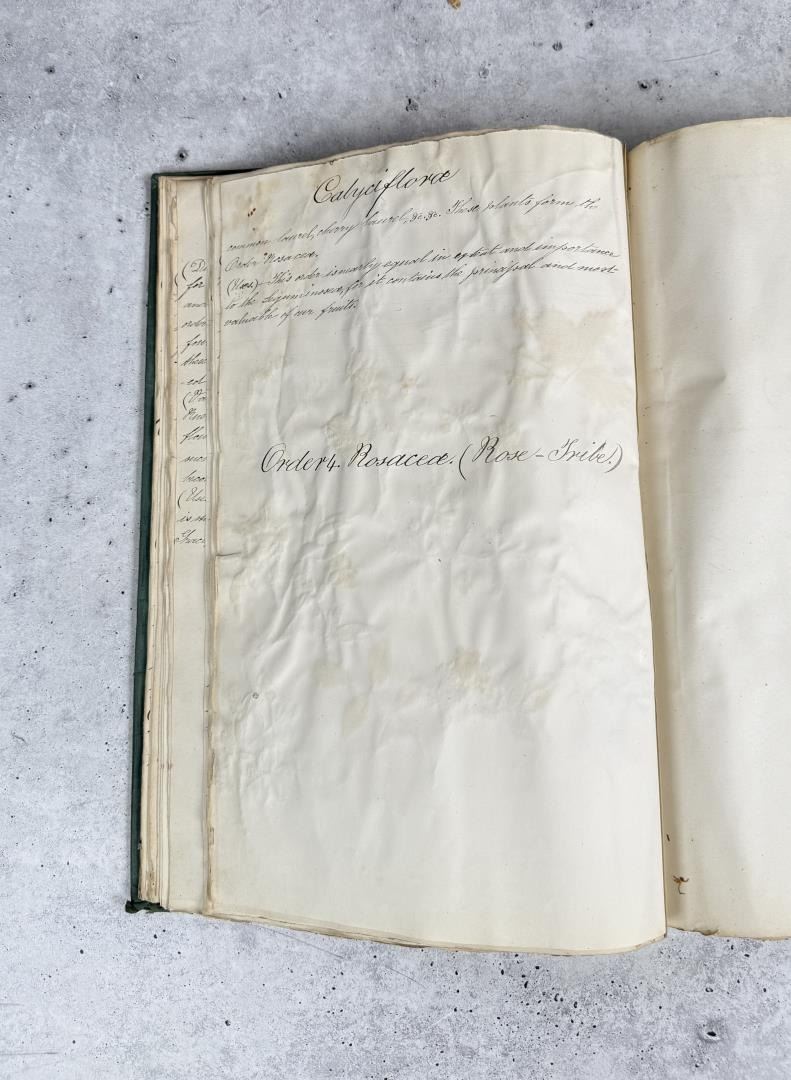 Calycifloræ
common laurel, cherry laurel, &c. &c. These plants form th
Order Rosaceæ.
(Uses) This order is nearly equal in extent and importance
to the Leguminosæ, for it contains the principal and most
valuable of our fruits.
Order 4. Rosaceæ. (Rose-Tribe.)
(De
for
and
orde
fore
these
-col
flow
(Use
is